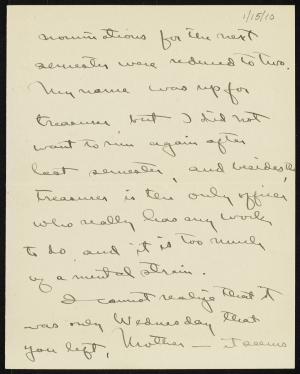 1/15/10
nominations for the next
semester were reduced to two.
My name was up for
treasurer but I did not
want to run again after
last semester, and besides the
treasurer is the only officer
who really has any work
to do and it is too much
of a mental strain.
I cannot realize that it
was only Wednesday that
you left, Mother — it seems